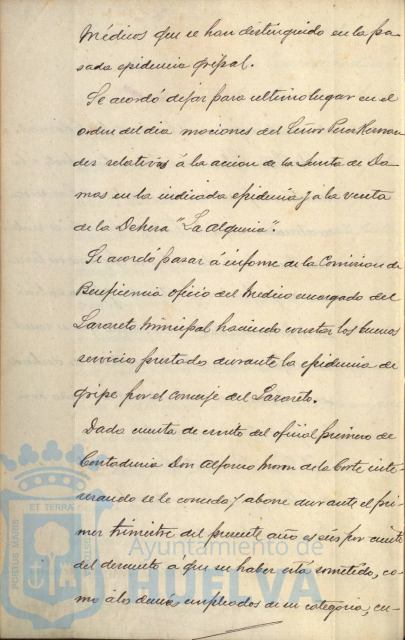 Médicos que se han distinguido en la pa-
sada epidemia gripal.
Se acordó dejar para ultimo lugar en el
orden del dia mociones del Señor Perez Hernan-
dez relativas á la accion de la Junta de Da-
mas en la indicada epidemia y á la venta
de la Dehesa "La Alqueria".
Se acordó pasar á informe de la Comision de
Beneficencia oficio del Medico encargado del
Lazareto Municipal haciendo constar los buenos
servicios prestados durante la epidemia de
gripe por el conserje del Lazareto.
Dada cuenta de escrito del oficial primero de
Contaduria Don Alfonso Moron de la Corte inte-
resando se le conceda y abone durante el pri-
mer trimestre del presente año el seis por ciento
del descuento á que su haber está sometido, co-
mo á los demás empleados de su categoria, cu-
PORTUS MARIS
ET TERRÆ
Ayuntamiento de
HUELVA